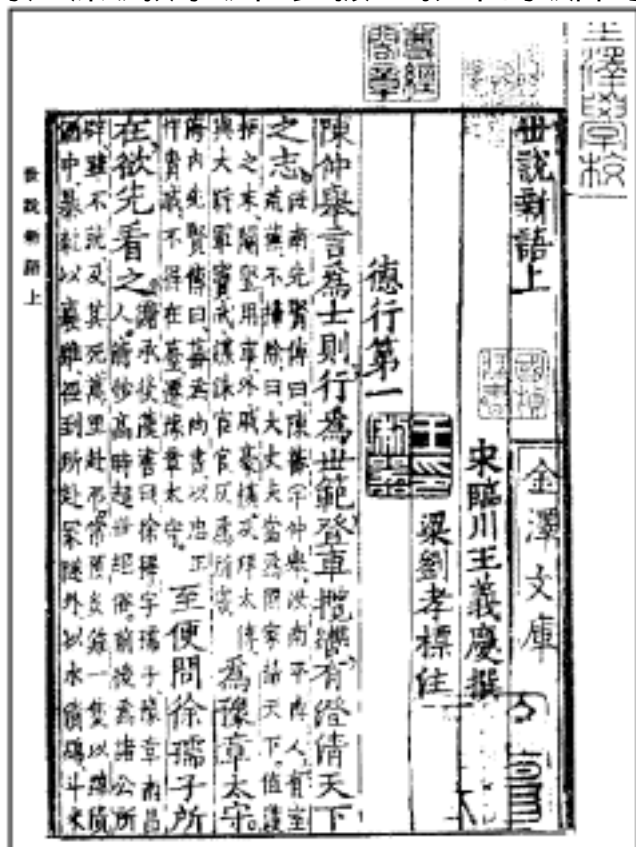 世說新語上
金澤文庫
宋臨川王義慶撰
梁劉孝標注
德行第一
陳仲舉言為士則行為世範登車攬轡有澄清天下
之志
汝南先賢傳曰陳蕃字仲舉汝南平輿人有室
荒蕪不掃除曰大丈夫當為國家掃天下值漢
桓之末閹豎用事外戚豪橫及拜太傅
與大將軍竇武謀誅宦官反為所害
為豫章太守
海內先賢傳曰蕃為尚書以忠正
忤貴戚不得在臺遷豫章太守
至便問徐孺子所
在欲先看之
謝承後漢書曰徐穉字孺子豫章南昌
人清妙高跱超世絕俗前後為諸公所
辟雖不就及其死萬里赴弔常預炙雞一隻以綿漬
酒中暴乾以裹雞徑到所赴冢隧外以水漬綿斗米
世說新語上